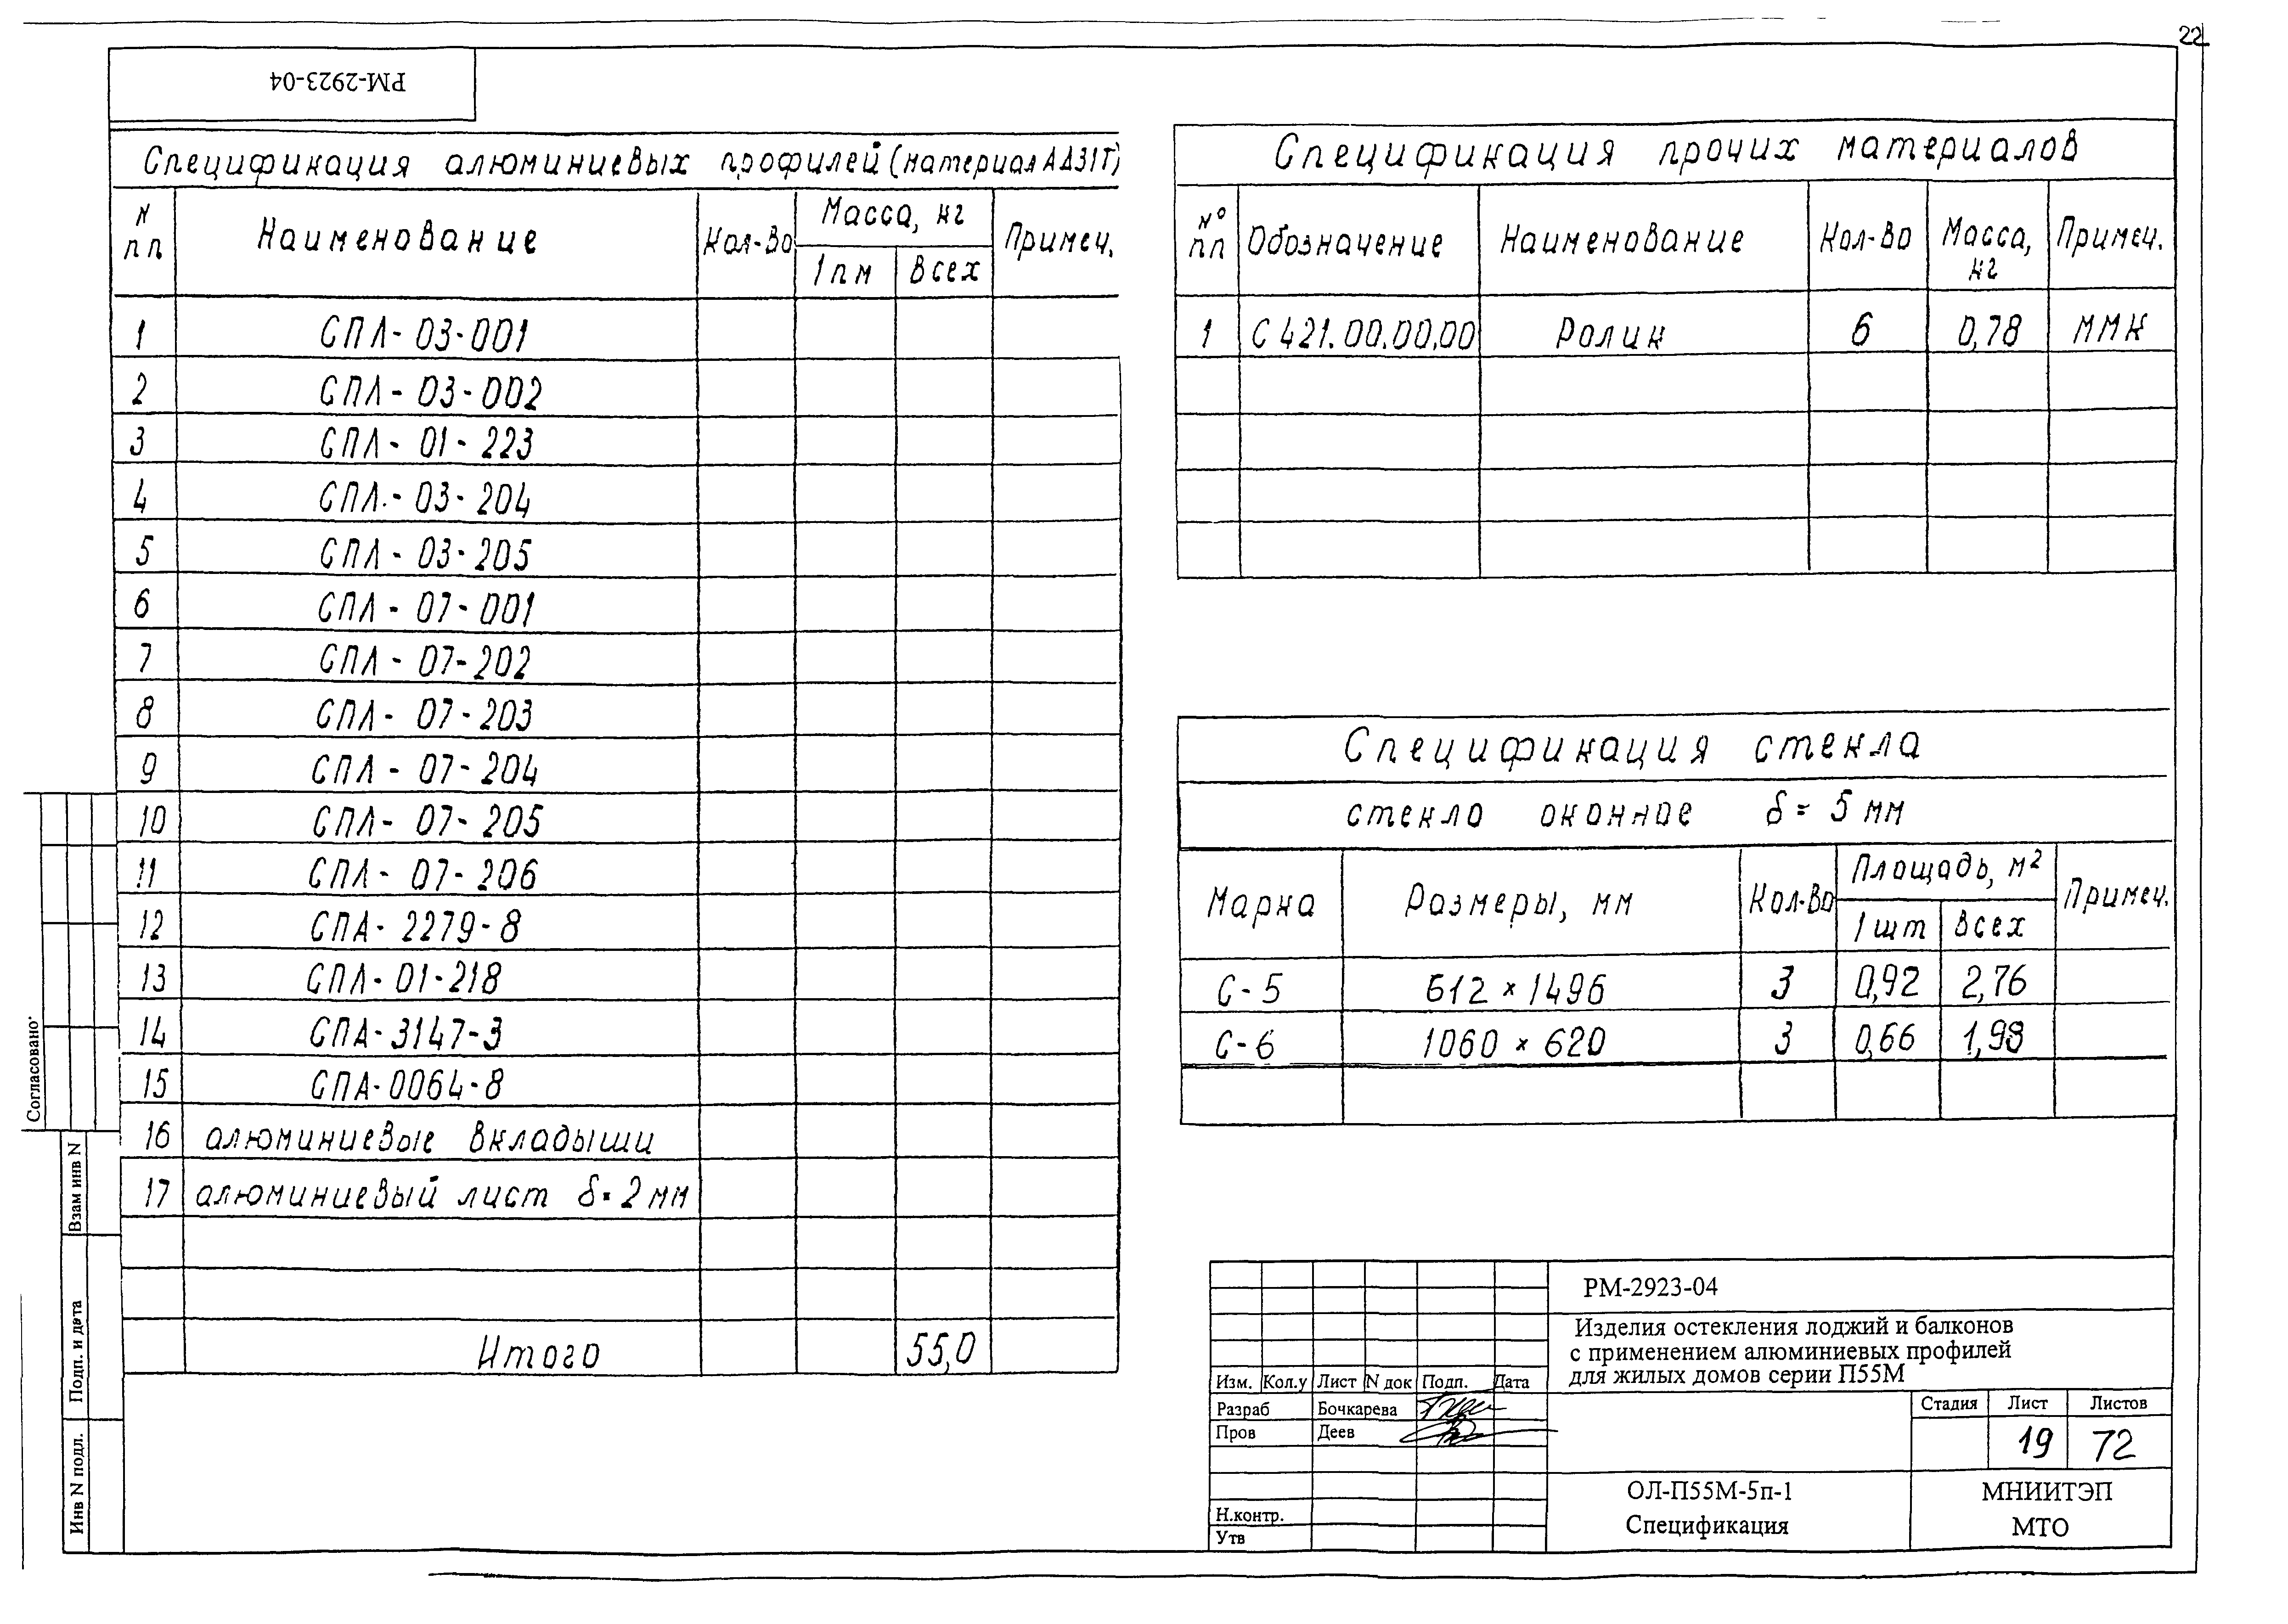 22
РМ-2923-04
Спецификация алюминиевых профилей (материал АД31Т)
N пп Наименование Кол-во Масса, кг Примеч.
1 пм Всех
1 СПЛ-03-001
2 СПЛ-03-002
3 СПЛ-01-223
4 СПЛ-03-204
5 СПЛ-03-205
6 СПЛ-07-001
7 СПЛ-07-202
8 СПЛ-07-203
9 СПЛ-07-204
10 СПЛ-07-205
11 СПЛ-07-206
12 СПА-2279-8
13 СПЛ-01-218
14 СПА-3147-3
15 СПА-0064-8
16 алюминиевые вкладыши
17 алюминиевый лист δ=2 мм
Итого 55,0
Спецификация прочих материалов
N° пп Обозначение Наименование Кол-во Масса, кг Примеч.
1 С 421.00.00.00 Ролик 6 0,78 ММК
Спецификация стекла
стекло оконное δ= 5 мм
Марка Размеры, мм Кол-во Площадь, м² Примеч.
1 шт Всех
С-5 612 × 1496 3 0,92 2,76
С-6 1060 × 620 3 0,66 1,98
Согласовано:
Взам инв N
Подп. и дата
Инв N подл.
РМ-2923-04
Изделия остекления лоджий и балконов
с применением алюминиевых профилей
для жилых домов серии П55М
Изм. Кол.у Лист N док Подп. Дата
Разраб Бочкарева
Пров Деев
Н.контр.
Утв
Стадия Лист Листов
19 72
ОЛ-П55М-5п-1
Спецификация
МНИИТЭП
МТО